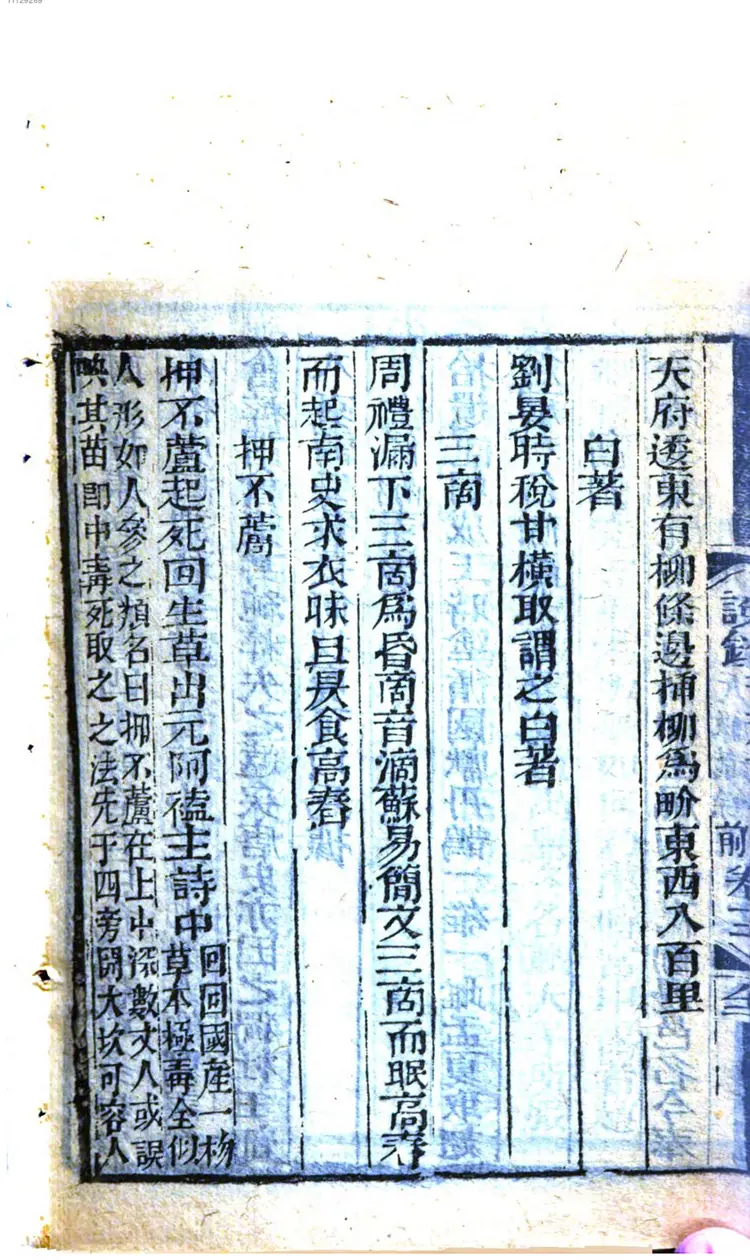 天府遼東有柳條邊插柳爲畍東西八百里
白著
劉晏時稅甘橫取謂之白著
三商
周禮漏下三商爲昏商音滴蘇易簡文三商而眠高舂
而起南史求衣昧旦昃食高舂
押不蘆
押不蘆起死回生草出元阿𥔵主詩中
回回國産一物
草本極毒全似
人形如人參之𩔖名曰押不蘆在上中深數丈人或誤
其苗即中毒死取之之法先于四旁開大坎可容人
前卷二